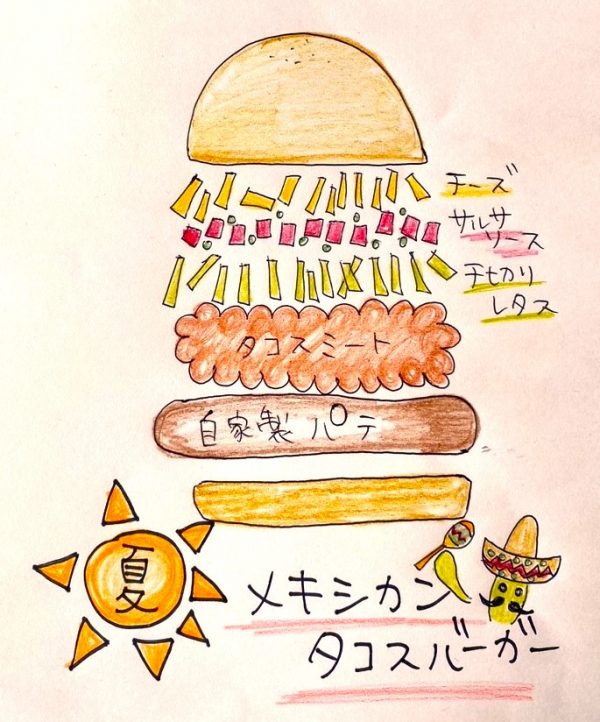 チーズ
サルサ
ソース
千切り
レタス
タコスミート
自家製パテ
夏
メキシカン
タコスバーガー